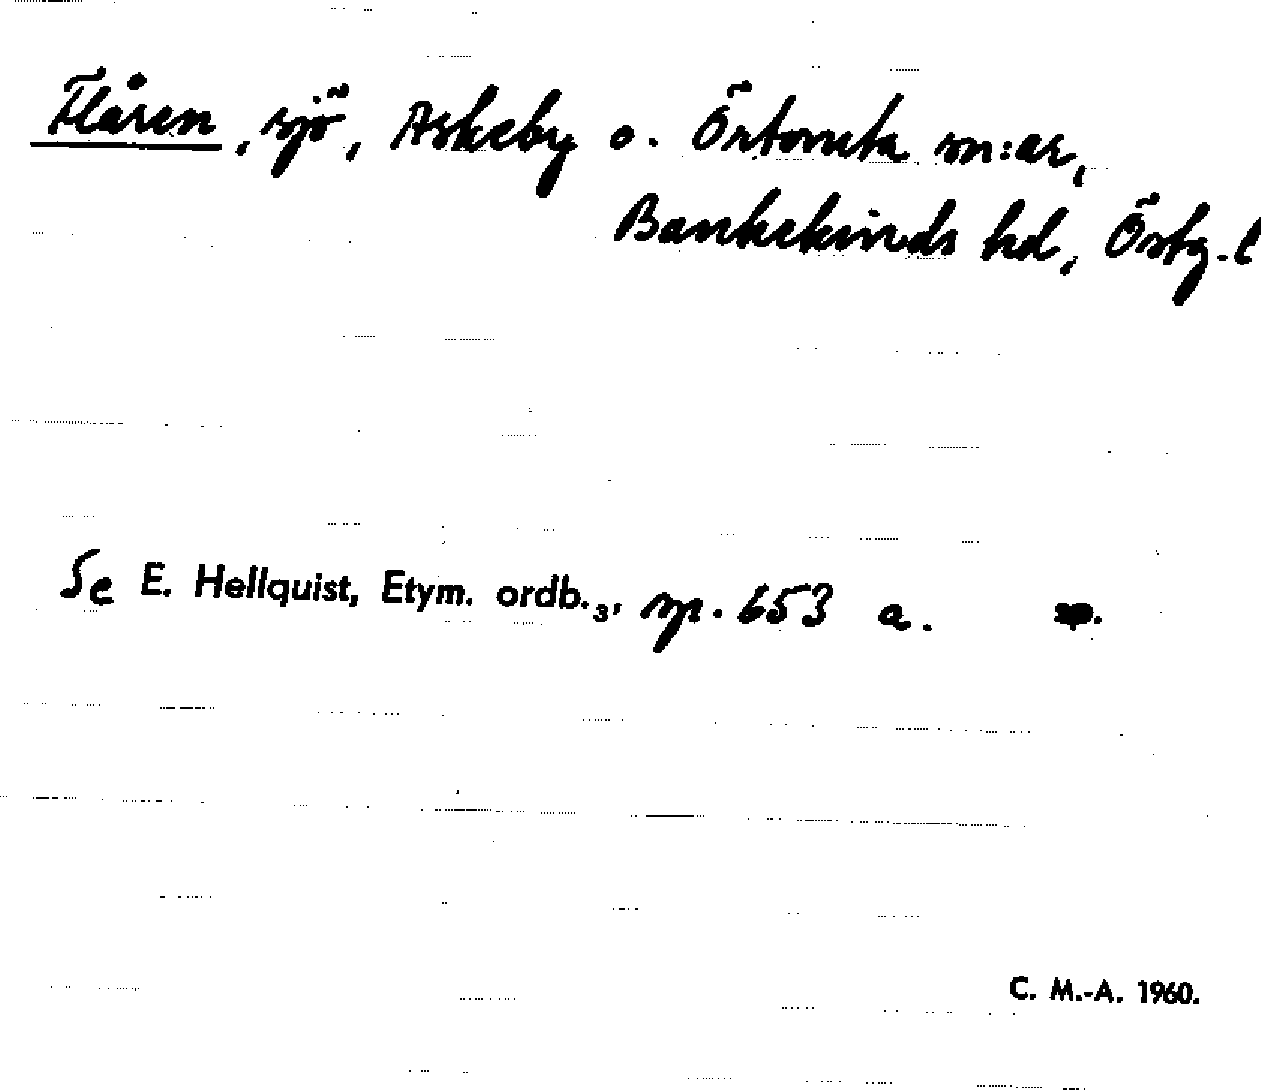 Flåren, sjö, Askeby o. Örtomta sn:ar,
Bankekinds hd, Östg. l
Se E. Hellquist, Etym. ordb.₃, sp. 653 a.
C. M.-A. 1960.